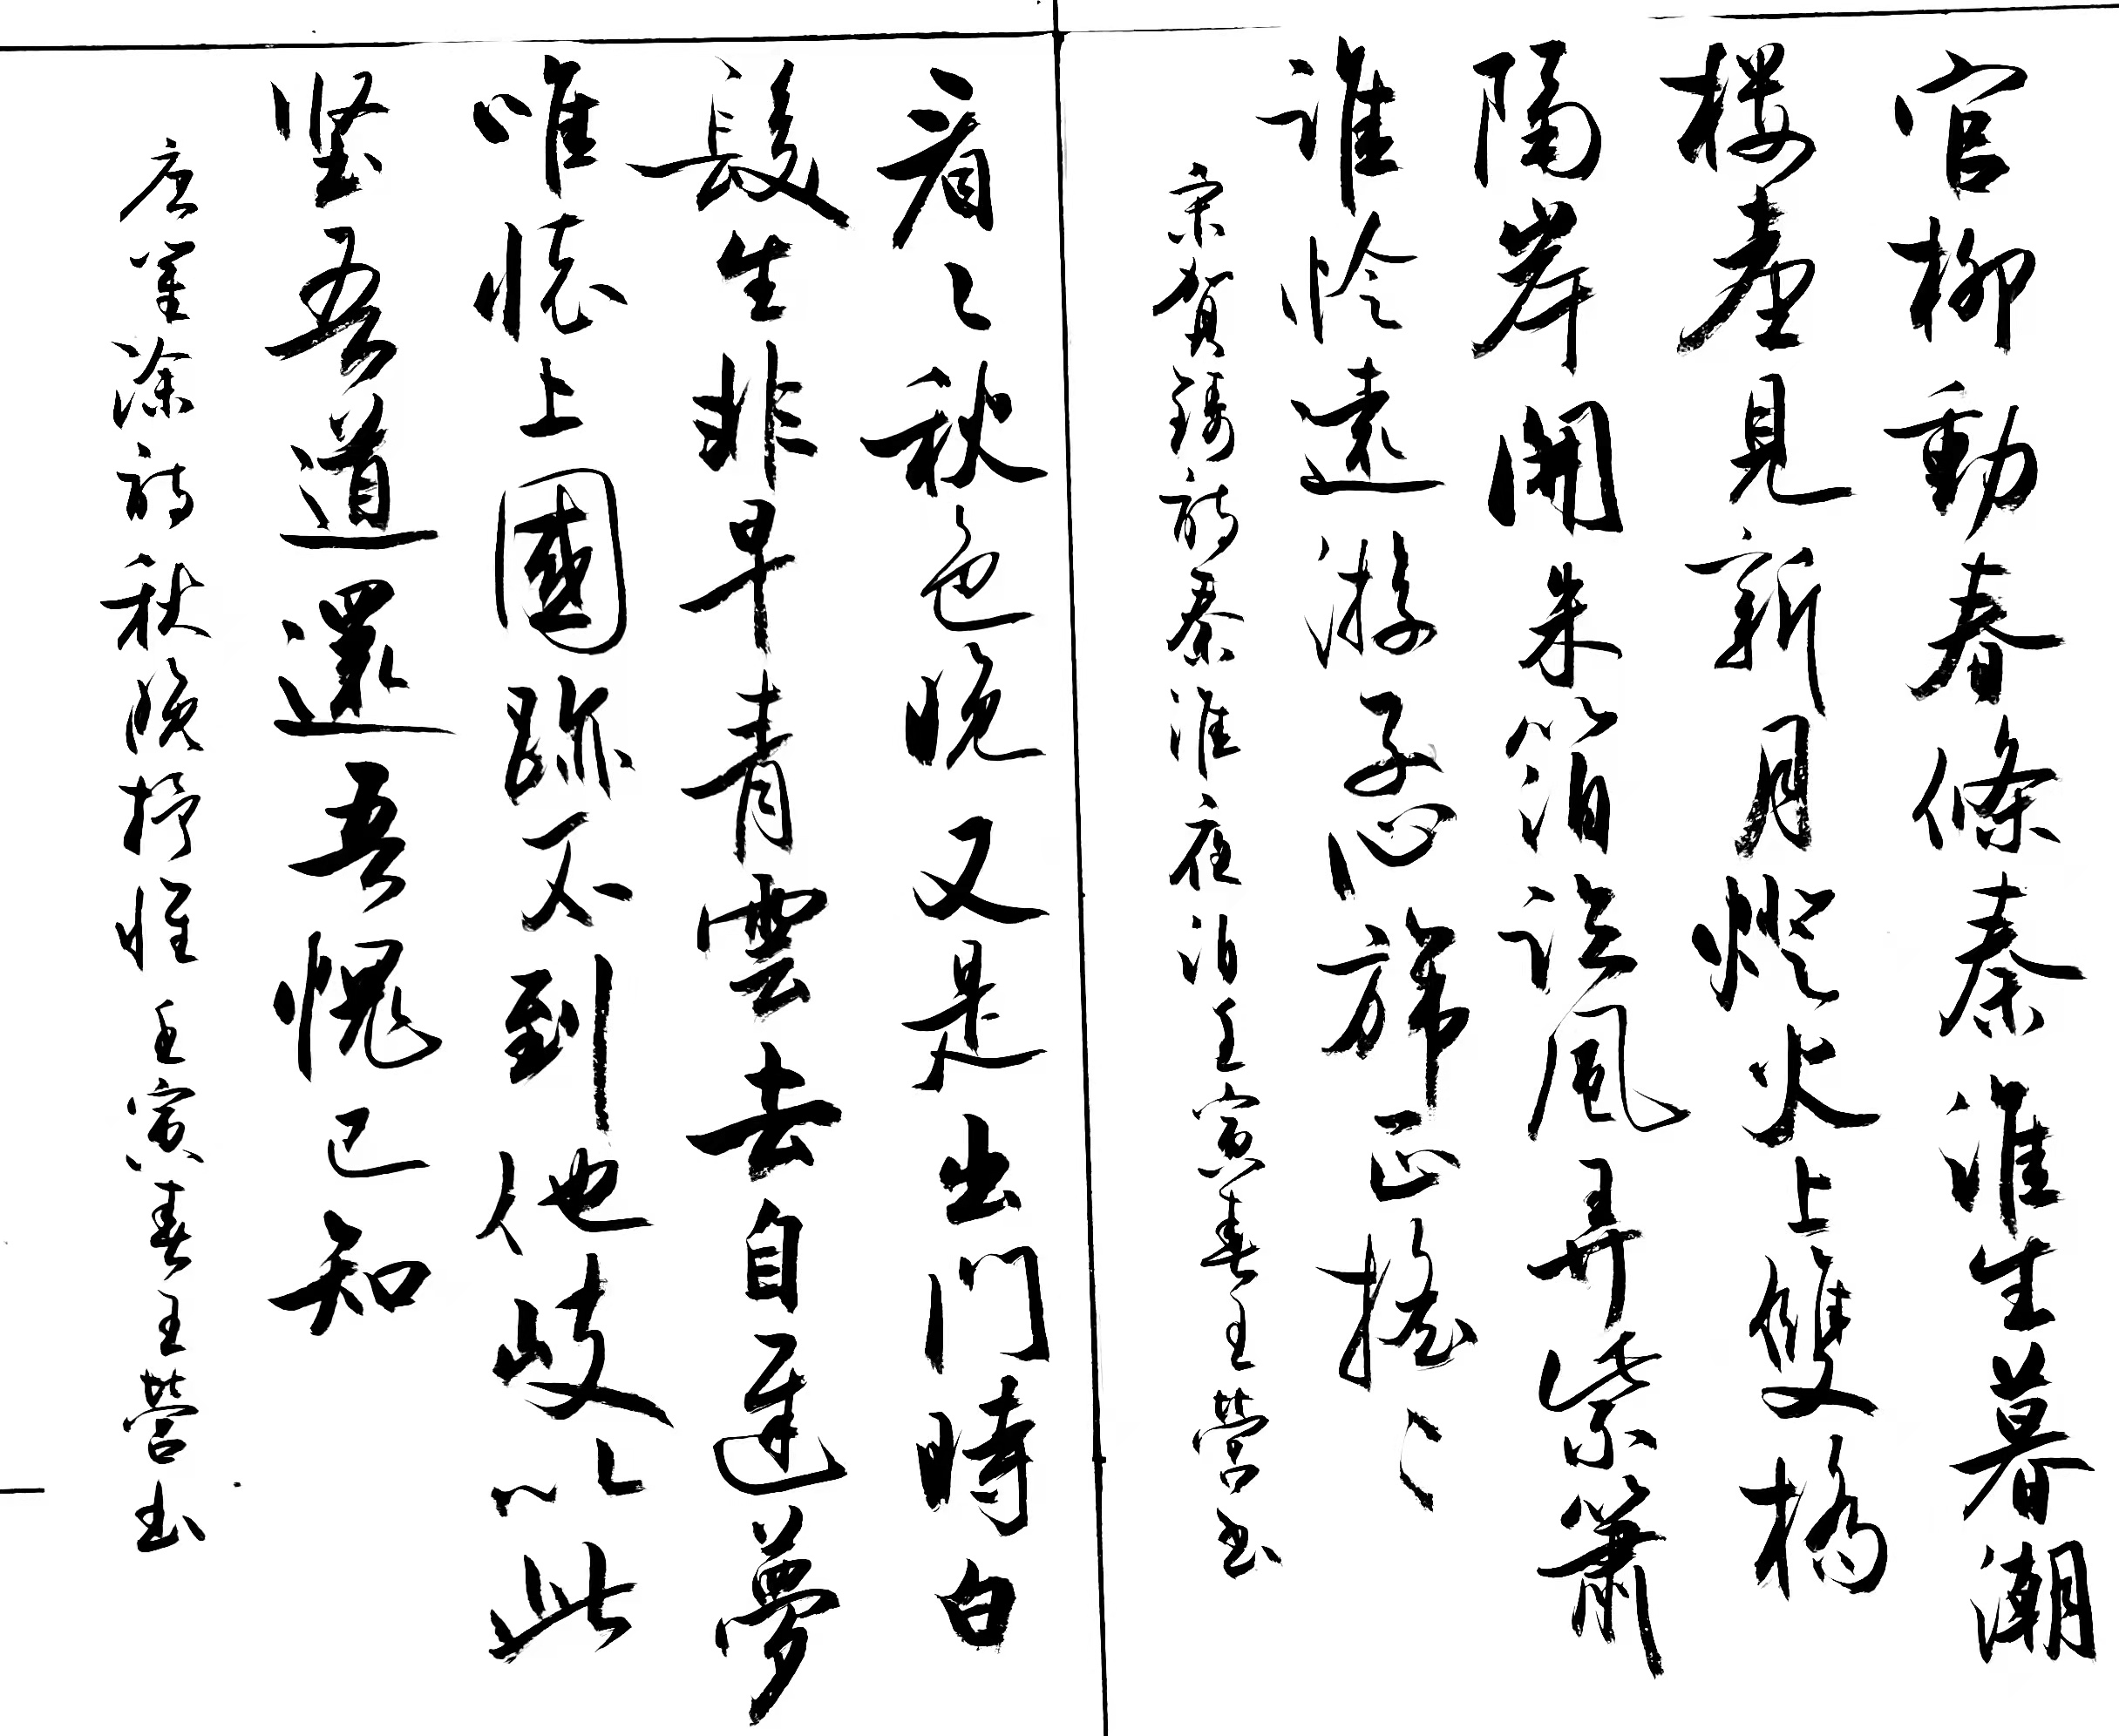 官柳動春條秦淮生暮潮
樓臺見新月燈火上雙橋
隔岸開朱箔臨風弄紫簫
誰憐遠游子心旆正搖〻
宋賀鑄詩秦淮夜泊壬寅春王營书
看〻秋色晚又是出門時白
髮生非早青雲去自遲夢
唯懷上國跡不到他歧以此
坚吾道還吾愧已知
唐羊涂詩秋晚抒懷 壬寅春王營书